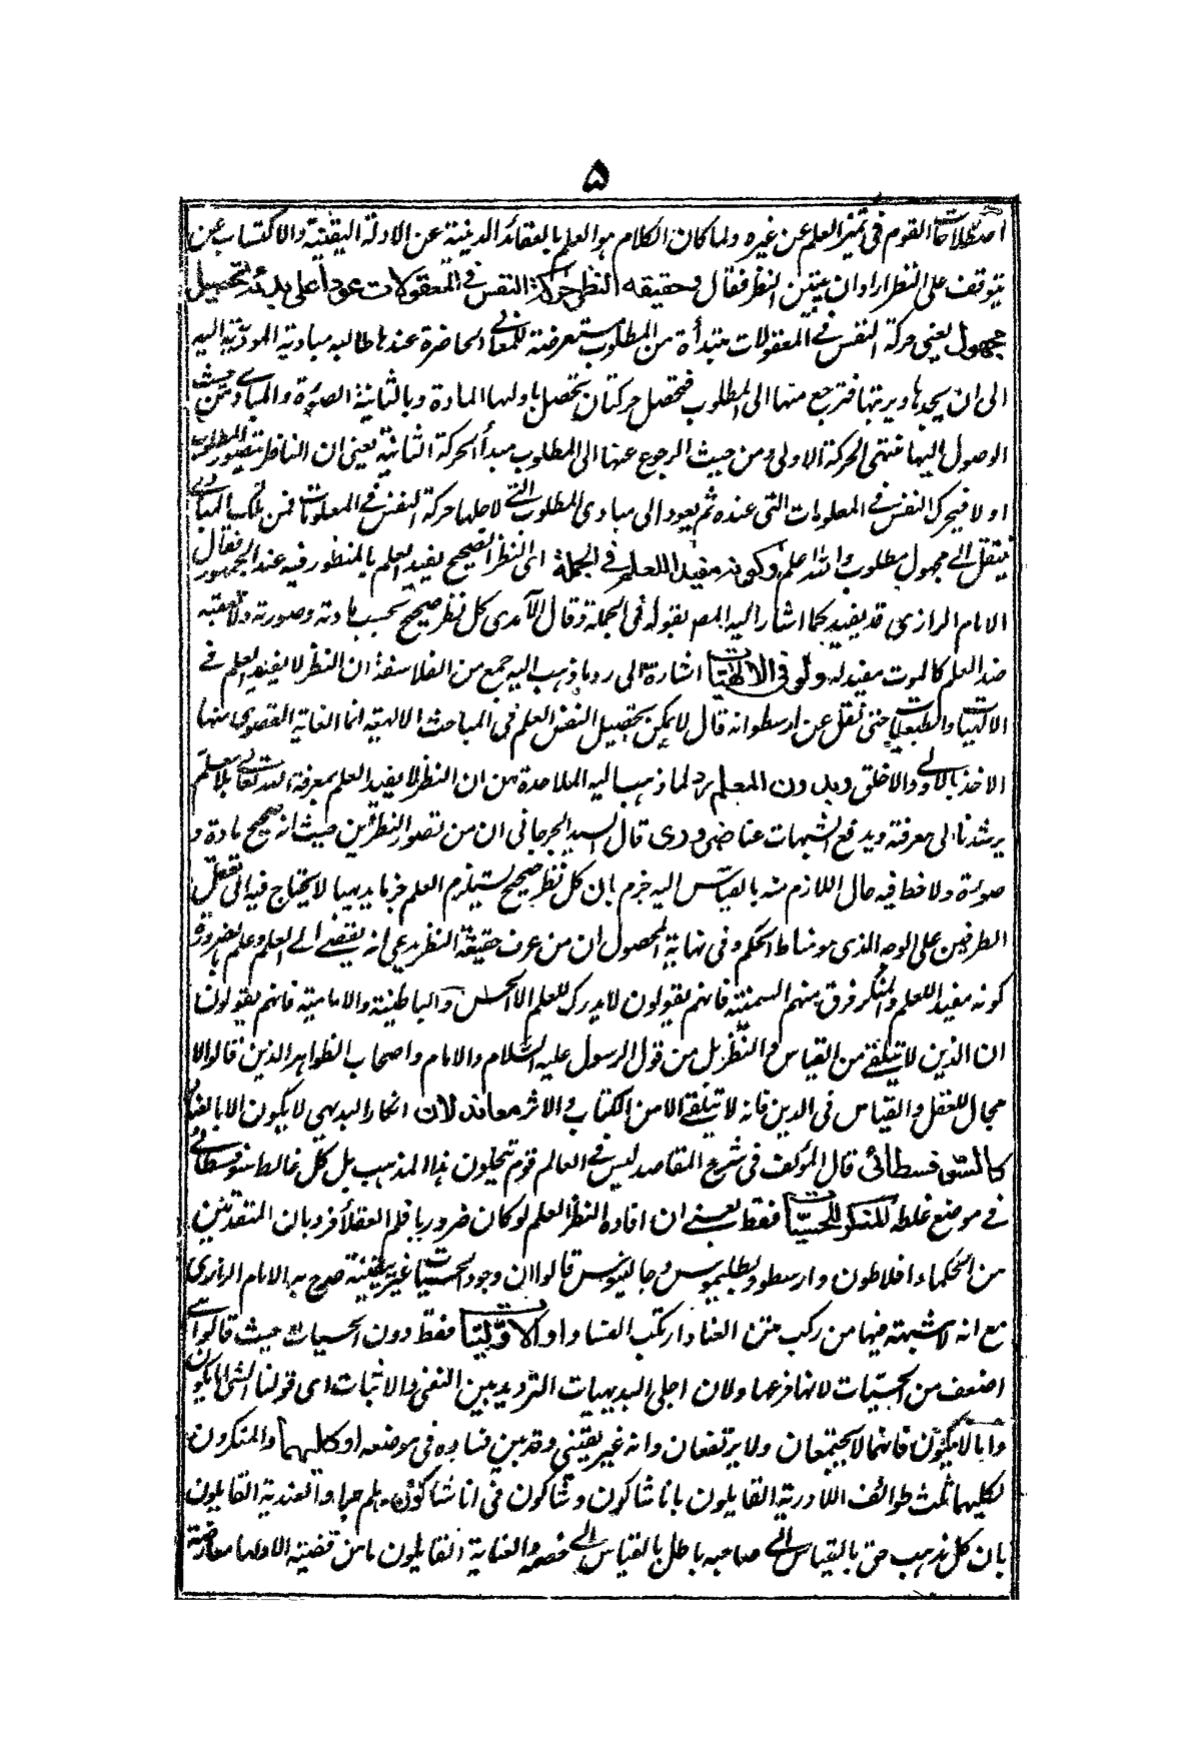 ۵
اصطلاحات القوم فى تميز العلم عن غيره ولما كان الكلام هو العلم بالعقائد الدينية عن الادلة اليقينية والاكتساب عن
يتوقف على النظر اراد ان يبين النظر فقال وحقيقه النظر حركة النفس فى المعقولات عودا على بدئه لتحصيل
مجهول يعنى حركة النفس فى المعقولات مبتدأة من المطلوب مستعرضة للمعانى الحاضرة عندها طالبه مباديه المودية اليه
الى ان يجدها ويرتبها فترجع منها الى المطلوب فتحصل حركتان تحصل باولهما المادة وبالثانية الصورة والمبادى من حيث
الوصول اليها منتهى الحركة الاولى ومن حيث الرجوع عنها الى المطلوب مبدأ الحركة الثانية يعنى ان الناظر يتصور المطلوب
اولا فيحرك النفس فى المعلومات التى عنده ثم يعود الى مبادى المطلوب التى لاجلها حركة النفس فى المعلومات فمن تلك المبادى
ينتقل الى مجهول مطلوب والله اعلم وكونه مفيدا للعلم فى الجملة اى النظر الصحيح يفيد العلم بالمنظور فيه عند الجمهور فقال
الامام الرازى قد يفيد كما اشار اليه المصـ بقوله فى الجملة وقال الآمدى كل نظر صحيح بحسب مادته وصورته ولا يعقبه
ضد العلم كالموت مفيد له ولو فى الالهيات اشارة الى رد ما ذهب اليه جمع من الفلاسفة ان النظر لا يفيد العلم فى
الالهيات والطبعيات حتى نقل عن ارسطو انه قال لا يمكن تحصيل النفس العلم فى المباحث الالهية انما الغاية القصوى منها
الاخذ بالاولى والاخلق وبدون المعلم رد لما ذهب اليه الملاحدة من ان النظر لا يفيد العلم بمعرفة الله تعالى بلا معلم
يرشدنا الى معرفته ويدفع الشبهات عنا ضرورى قال السيد الجرجانى ان من تصور النظر من حيث انه صحيح مادة و
صورة ولاحظ فيه حال اللازم منه بالقياس اليه جزم بان كل نظر صحيح يستلزم العلم جزما بديهيا لا يحتاج فيه الى تعقل
الطرفين على الوجه الذى هو مناط الحكم وفى نهاية المحصول ان من عرف حقيقة النظر يدعى انه يفضى الى العلم وعلم بضرورة
كونه مفيدا للعلم والمنكر فرق منهم السمنية فانهم يقولون لا يدرك للعلم الا الحس والباطنية والامامية فانهم يقولون
ان الذين لا يتلقى من القياس والنظر بل من قول الرسول عليه السلام والامام واصحاب الظواهر الذين قالوا لا
مجال للعقل والقياس فى الدين فانه لا يتلقى الا من الكتاب والاثر معاند لان انكار البديهى لا يكون الا بالعناد
كالسوفسطائى قال المؤلف فى شرح المقاصد ليس فى العالم قوم ينتحلون هذا المذهب بل كل غالط سوفسطائى
فى موضع غلطه لمنكر الحسيات فقط يعنى ان افادة النظر العلم لو كان ضروريا فلم العقلأ فرد بان المتقدمين
من الحكماء افلاطون وارسطو وبطليموس وجالينوس قالوا ان وجود الحسيات غير يقينية صرح به الامام الرازى
مع انه لا شبهة فيها من ركب متن العناد ارتكب الفساد او الاوليات فقط دون الحسيات حيث قالوا
اضعف من الحسيات لانها فرعها ولان اجلى البديهيات الترديد بين النفى والاثبات اى قولنا الشئ اما يكون
واما لا يكون فانهما لا يجتمعان ولا يرتفعان وانه غير يقينى وقد بين فساده فى موضعه او كليهما والمنكرون
لكليهما ثلث طوائف اللادرية القايلون بانا شاكون وشاكون فى انا شاكون هلم جرا والعندية القايلون
بان كل مذهب حق بالقياس الى صاحبه باطل بالقياس الى خصمه والعنادية القايلون ما من قضية الا ولها معارضة